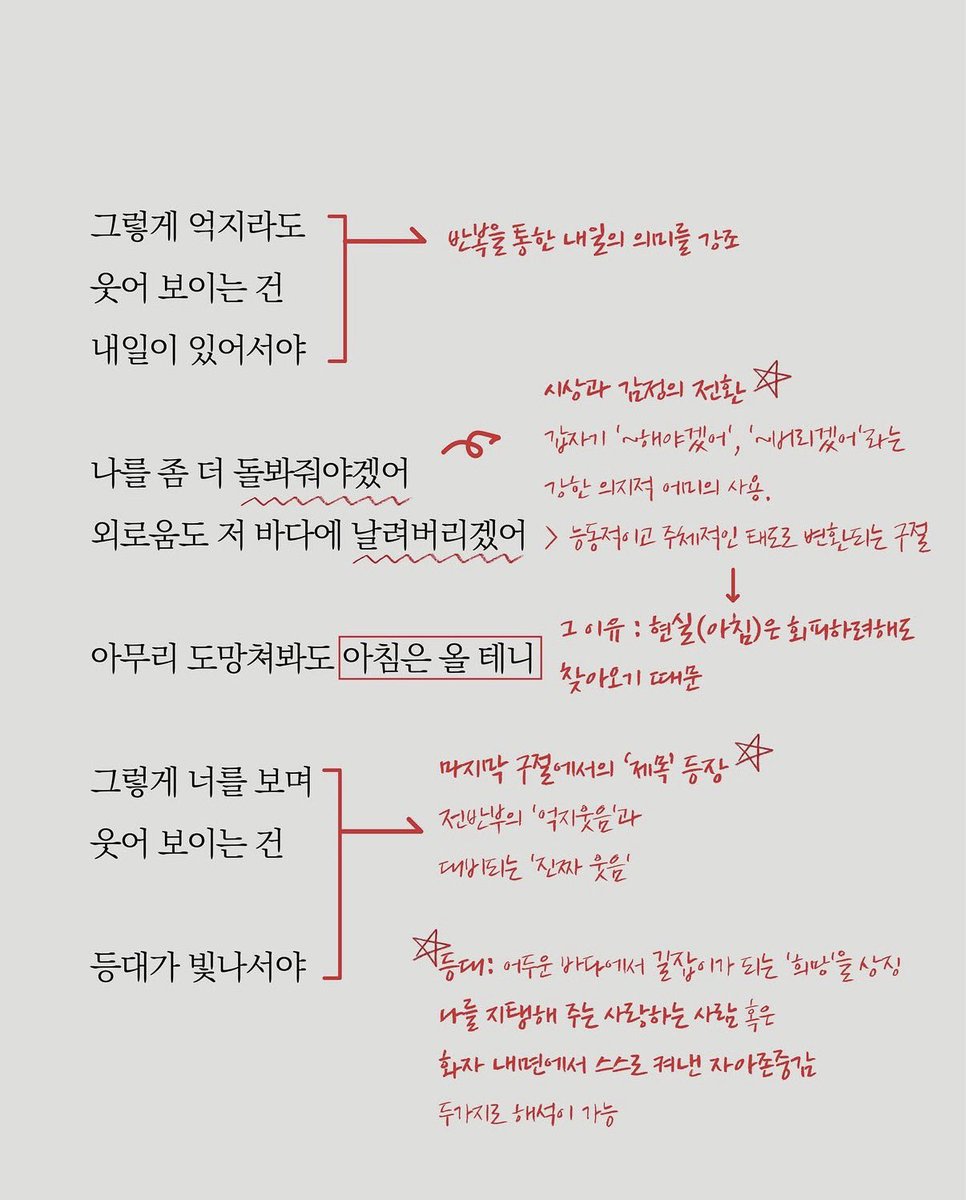 그렇게 억지라도
웃어 보이는 건
내일이 있어서야
반복을 통한 내일의 의미를 강조
나를 좀 더 돌봐줘야겠어
외로움도 저 바다에 날려버리겠어
시상과 감정의 전환
갑자기 '~해야겠어', '~버리겠어'라는
강한 의지적 어미의 사용.
> 능동적이고 주체적인 태도로 변환되는 구절
아무리 도망쳐봐도 아침은 올 테니
그 이유 : 현실(아침)은 회피하려해도
찾아오기 때문
그렇게 너를 보며
웃어 보이는 건
등대가 빛나서야
마지막 구절에서의 '제목' 등장
전반부의 '억지웃음'과
대비되는 '진짜 웃음'
등대: 어두운 바다에서 길잡이가 되는 '희망'을 상징
나를 지탱해 주는 사랑하는 사람 혹은
화자 내면에서 스스로 켜낸 자아존중감
두가지로 해석이 가능